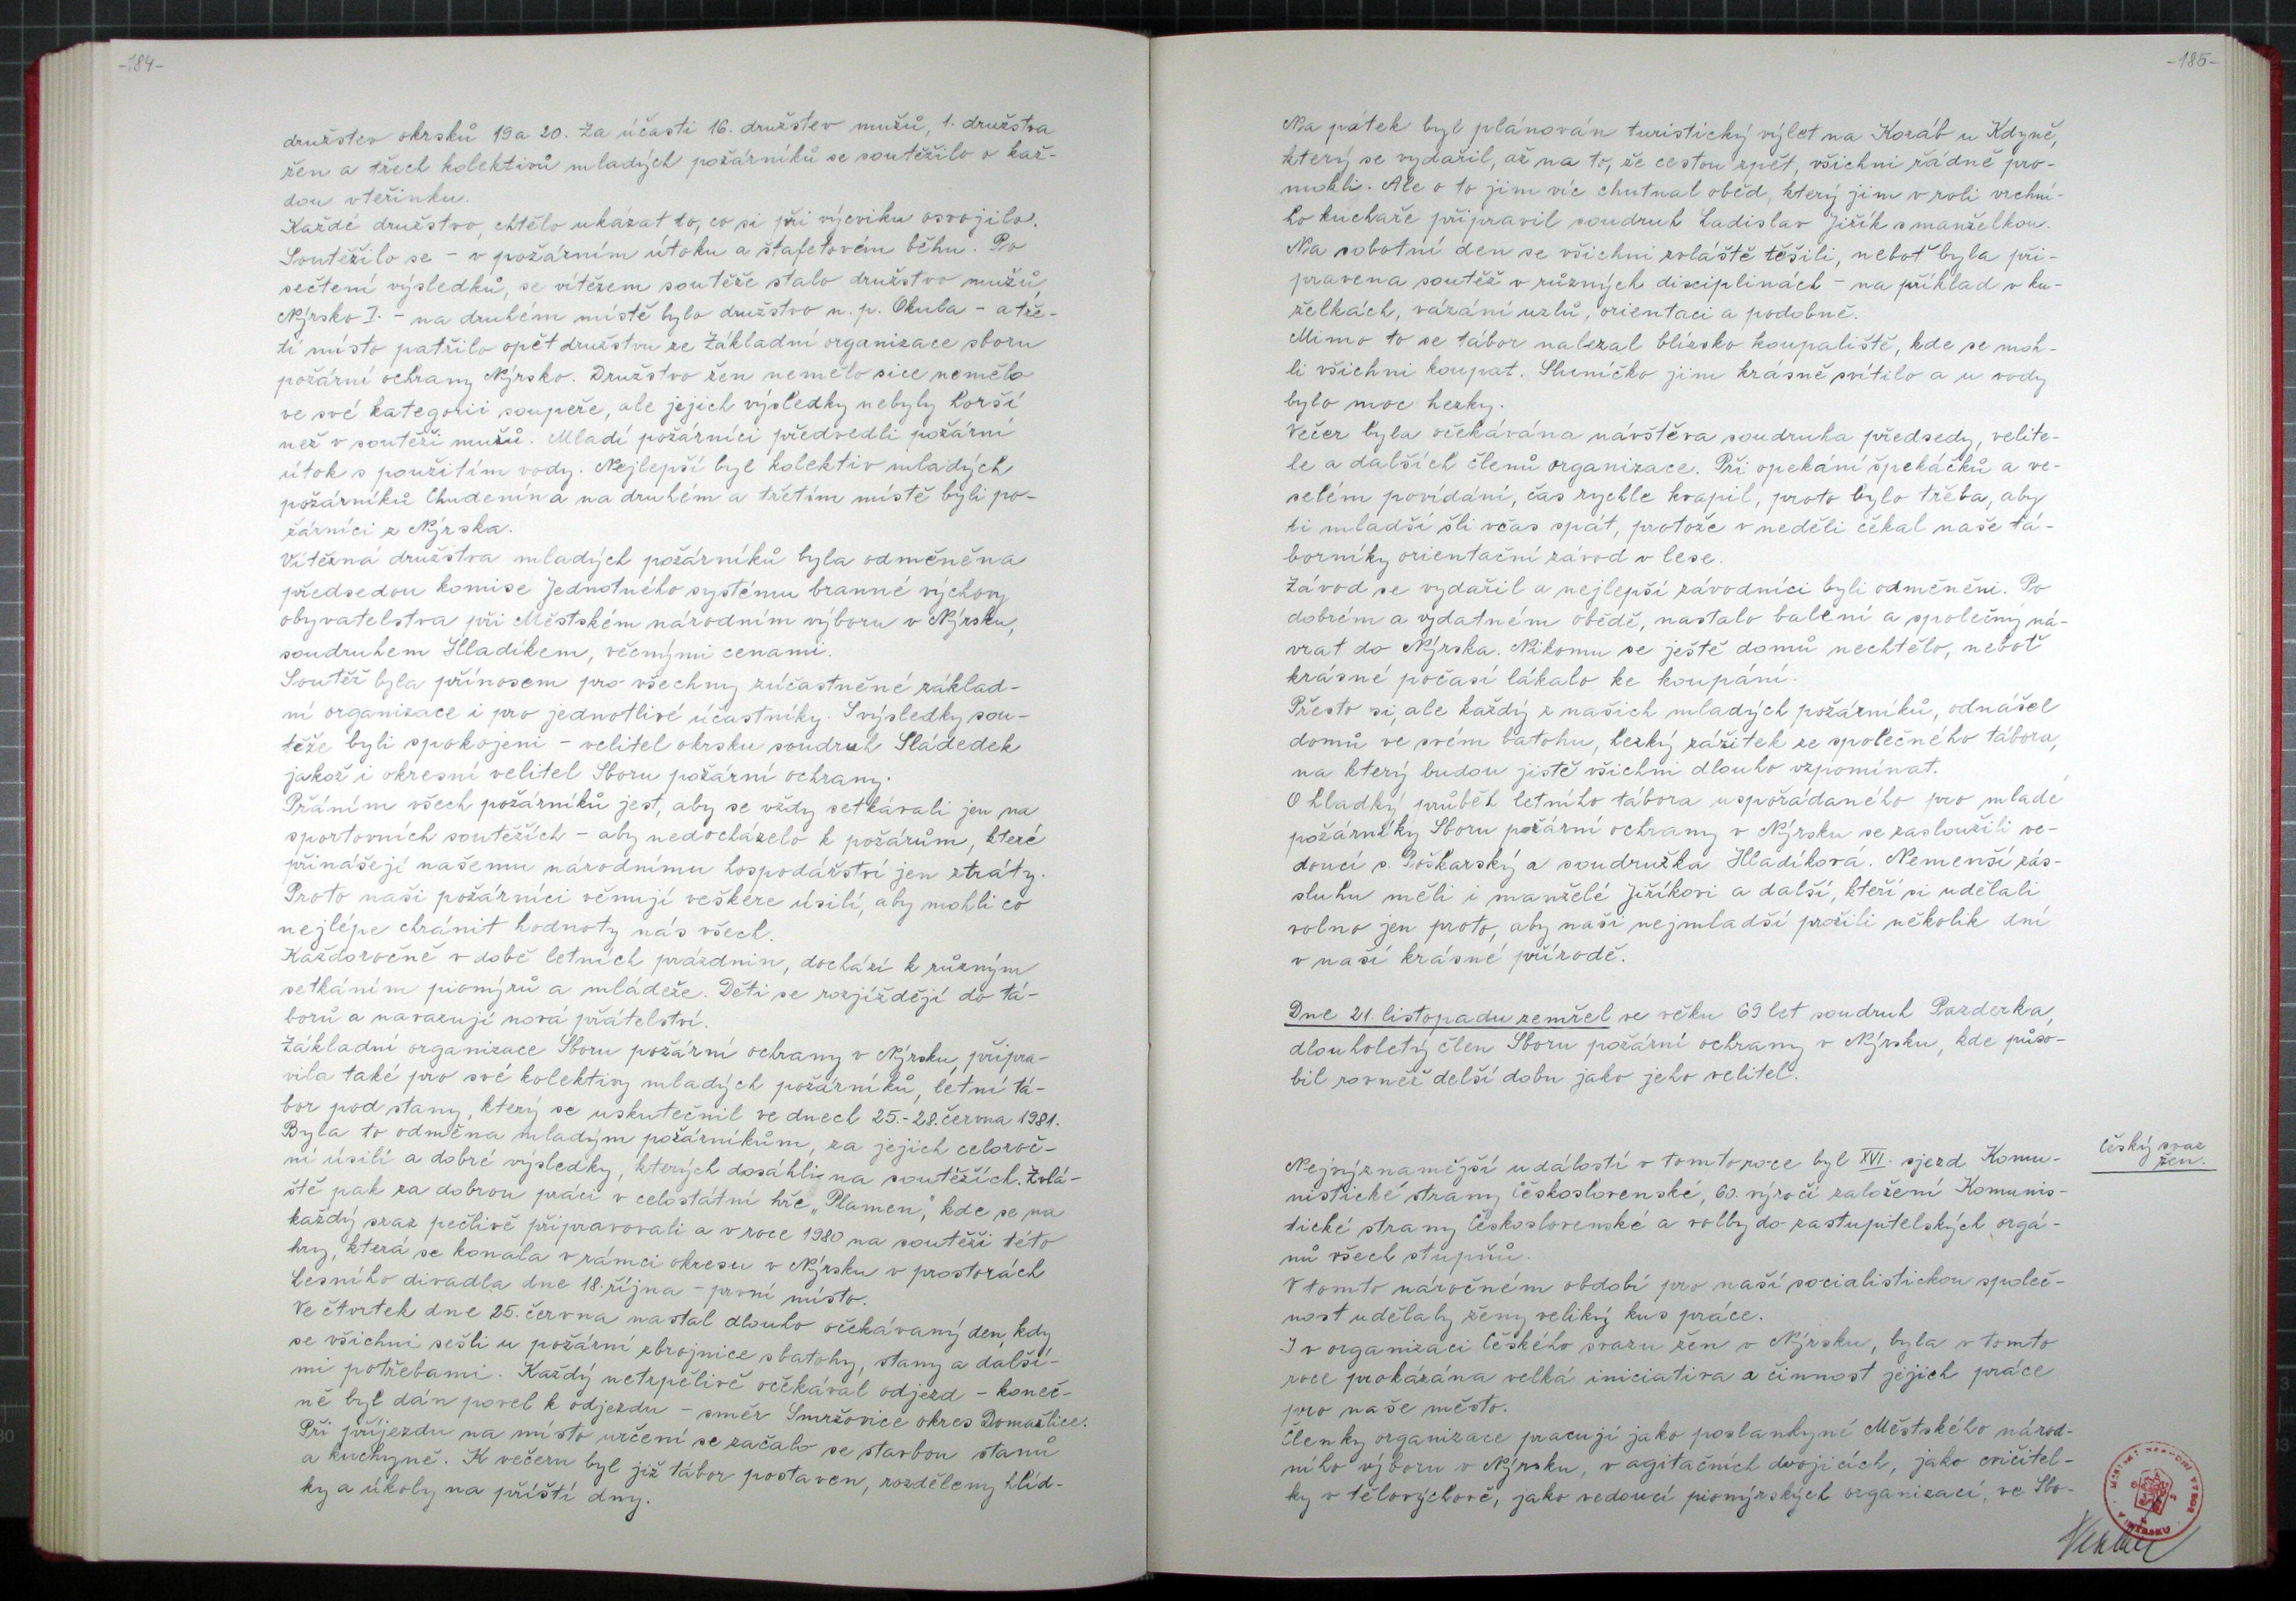 -184-
družstev okrsků 19 a 20. Za účasti 16. družstev mužů, 1. družstva
žen a třech kolektivů mladých požárníků se soutěžilo o kaž-
dou vteřinku.
Každé družstvo, chtělo ukázat to, co si při výcviku osvojilo.
Soutěžilo se - v požárním útoku a štafetovém běhu. Po
sečtení výsledků, se vítězem soutěže stalo družstvo mužů
Nýrsko I. - na druhém místě bylo družstvo n. p. Okula - a tře-
tí místo patřilo opět družstvu ze Základní organizace sboru
požární ochrany Nýrsko. Družstvo žen nemělo sice nemělo
ve své kategorii soupeře, ale jejich výsledky nebyly horší
než v soutěži mužů. Mladí požárníci předvedli požární
útok s použitím vody. Nejlepší byl kolektiv mladých
požárníků Chudenína na druhém a třetím místě byli po-
žárníci z Nýrska.
Vítězná družstva mladých požárníků byla odměněna
předsedou komise Jednotného systému branné výchovy
obyvatelstva při Městském národním výboru v Nýrsku,
soudruhem Hladíkem, věčnými cenami.
Soutěž byla přínosem pro všechny zúčastněné základ-
ní organizace i pro jednotlivé účastníky. S výsledky sou-
těže byli spokojeni - velitel okrsku soudruh Sládedek
jakož i okresní velitel Sboru požární ochrany.
Přáním všech požárníků jest, aby se vždy setkávali jen na
sportovních soutěžích - aby nedocházelo k požárům, které
přinášejí našemu národnímu hospodářství jen ztráty.
Proto naši požárníci věnují veškeré úsilí, aby mohli co
nejlépe chránit hodnoty nás všech.
Každoročně v době letních prázdnin, dochází k různým
setkáním pionýrů a mládeže. Děti se rozjíždějí do tá-
borů a navazují nová přátelství.
Základní organizace Sboru požární ochrany v Nýrsku, připra-
vila také pro své kolektivy mladých požárníků, letní tá-
bor pod stany, který se uskutečnil ve dnech 25.-28. června 1981.
Byla to odměna mladým požárníkům, za jejich celoroč-
ní úsilí a dobré výsledky, kterých dosáhli na soutěžích. Zvlá-
ště pak za dobrou práci v celostátní hře „Plamen", kde se na
každý sraz pečlivě připravovali a v roce 1980 na soutěži této
hry, která se konala v rámci okresu v Nýrsku v prostorách
Lesního divadla dne 18. října - první místo.
Ve čtvrtek dne 25. června nastal dlouho očekávaný den, kdy
se všichni sešli u požární zbrojnice s batohy, stany a další-
mi potřebami. Každý netrpělivě očekával odjezd - koneč-
ně byl dán povel k odjezdu - směr Smržovice okres Domažlice.
Při příjezdu na místo určení se začalo se stavbou stanů
a kuchyně. K večeru byl již tábor postaven, rozděleny hlíd-
ky a úkoly na příští dny.
-185-
Na pátek byl plánován turistický výlet na Koráb u Kdyně,
který se vydařil, až na to, že cestou zpět, všichni řádně pro-
mokli. Ale o to jim víc chutnal oběd, který jim v roli vrchní-
ho kuchaře připravil soudruh Ladislav Jiřík s manželkou.
Na sobotní den se všichni zvláště těšili, neboť byla při-
pravena soutěž v různých disciplinách - na příklad v ku-
želkách, vázání uzlů, orientaci a podobně.
Mimo to se tábor nalezal blízsko koupaliště, kde se moh-
li všichni koupat. Sluníčko jim krásně svítilo a u vody
bylo moc hezky.
Večer byla očekávána návštěva soudruha předsedy, velite-
le a dalších členů organizace. Při opekání špekáčků a ve-
selém povídání, čas rychle kvapil, proto bylo třeba, aby
ti mladší šli včas spát, protože v neděli čekal naše tá-
borníky orientační závod v lese.
Závod se vydařil a nejlepší závodníci byli odměněni. Po
dobrém a vydatném obědě, nastalo balení a společný ná-
vrat do Nýrska. Nikomu se ještě domů nechtělo, neboť
krásné počasí lákalo ke koupání.
Přesto si, ale každý z našich mladých požárníků, odnášel
domů ve svém batohu, hezký zážitek ze společného tábora,
na který budou jistě všichni dlouho vzpomínat.
O hladký průběh letního tábora uspořádaného pro mladé
požárníky Sboru požární ochrany v Nýrsku se zasloužili ve-
doucí s. Poškarský a soudružka Hladíková. Nemenší zás-
sluhu měli i manželé Jiříkovi a další, kteří si udělali
volno jen proto, aby naši nejmladší prožili několik dní
v naší krásné přírodě.
Dne 21. listopadu zemřel ve věku 69 let soudruh Pazderka,
dlouholetý člen Sboru požární ochrany v Nýrsku, kde půso-
bil rovněž delší dobu jako jeho velitel.
Český svaz
žen.
Nejvýznamější událostí v tomto roce byl XVI. sjezd Komu-
nistické strany Československé, 60. výročí založení Komunis-
tické strany Československé a volby do zastupitelských orgá-
nů všech stupňů.
V tomto náročném období pro naší socialistickou společ-
nost udělaly ženy veliký kus práce.
I v organizaci Českého svazu žen v Nýrsku, byla v tomto
roce prokázána velká iniciativa a činnost jejich práce
pro naše město.
Členky organizace pracují jako poslankyně Městského národ-
ního výboru v Nýrsku, v agitačních dvojicích, jako cvičitel-
ky v tělovýchově, jako vedoucí pionýrských organizací, ve Sbo-
MÍSTNÍ NÁRODNÍ VÝBOR
V NÝRSKU